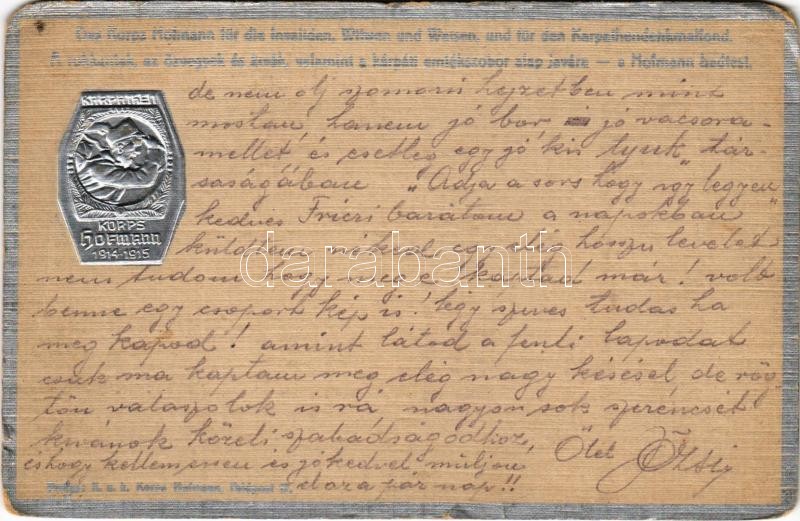 Das Korps Hofmann für die Invaliden, Witwen und Waisen, und für den Karpathendenkmalfond.
A rokkantak, az özvegyek és árvák, valamint a kárpáti emlékszobor alap javára — a Hofmann hadtest.
KARPATHEN
KORPS
Hofmann
1914-1915
de nem oly szomorú helyzetben mint
mostan, hanem jó bor jó vacsora-
mellet, és esetleg egy jó kis "tyuk" tár-
saságában "Adja a sors hogy ugy legyen"
kedves Friczi barátom a napokban
küldtem néked egy hosszu levelet
nem tudom hogy meg e kaptad már! volt
benne egy csoport kép is! légy szives tudas ha
meg kapod! amint látod a fenti lapodat
csak ma kaptam meg elég nagy késéssel, de rög-
tön válaszolok is rá, nagyon sok szerencsét
kivánok közeli szabadságodhoz,
és hogy kellemesen és jókedvel muljon
el az a pár nap!!
Ölel
darabanth
K. u. k. Korps Hofmann, Feldpost